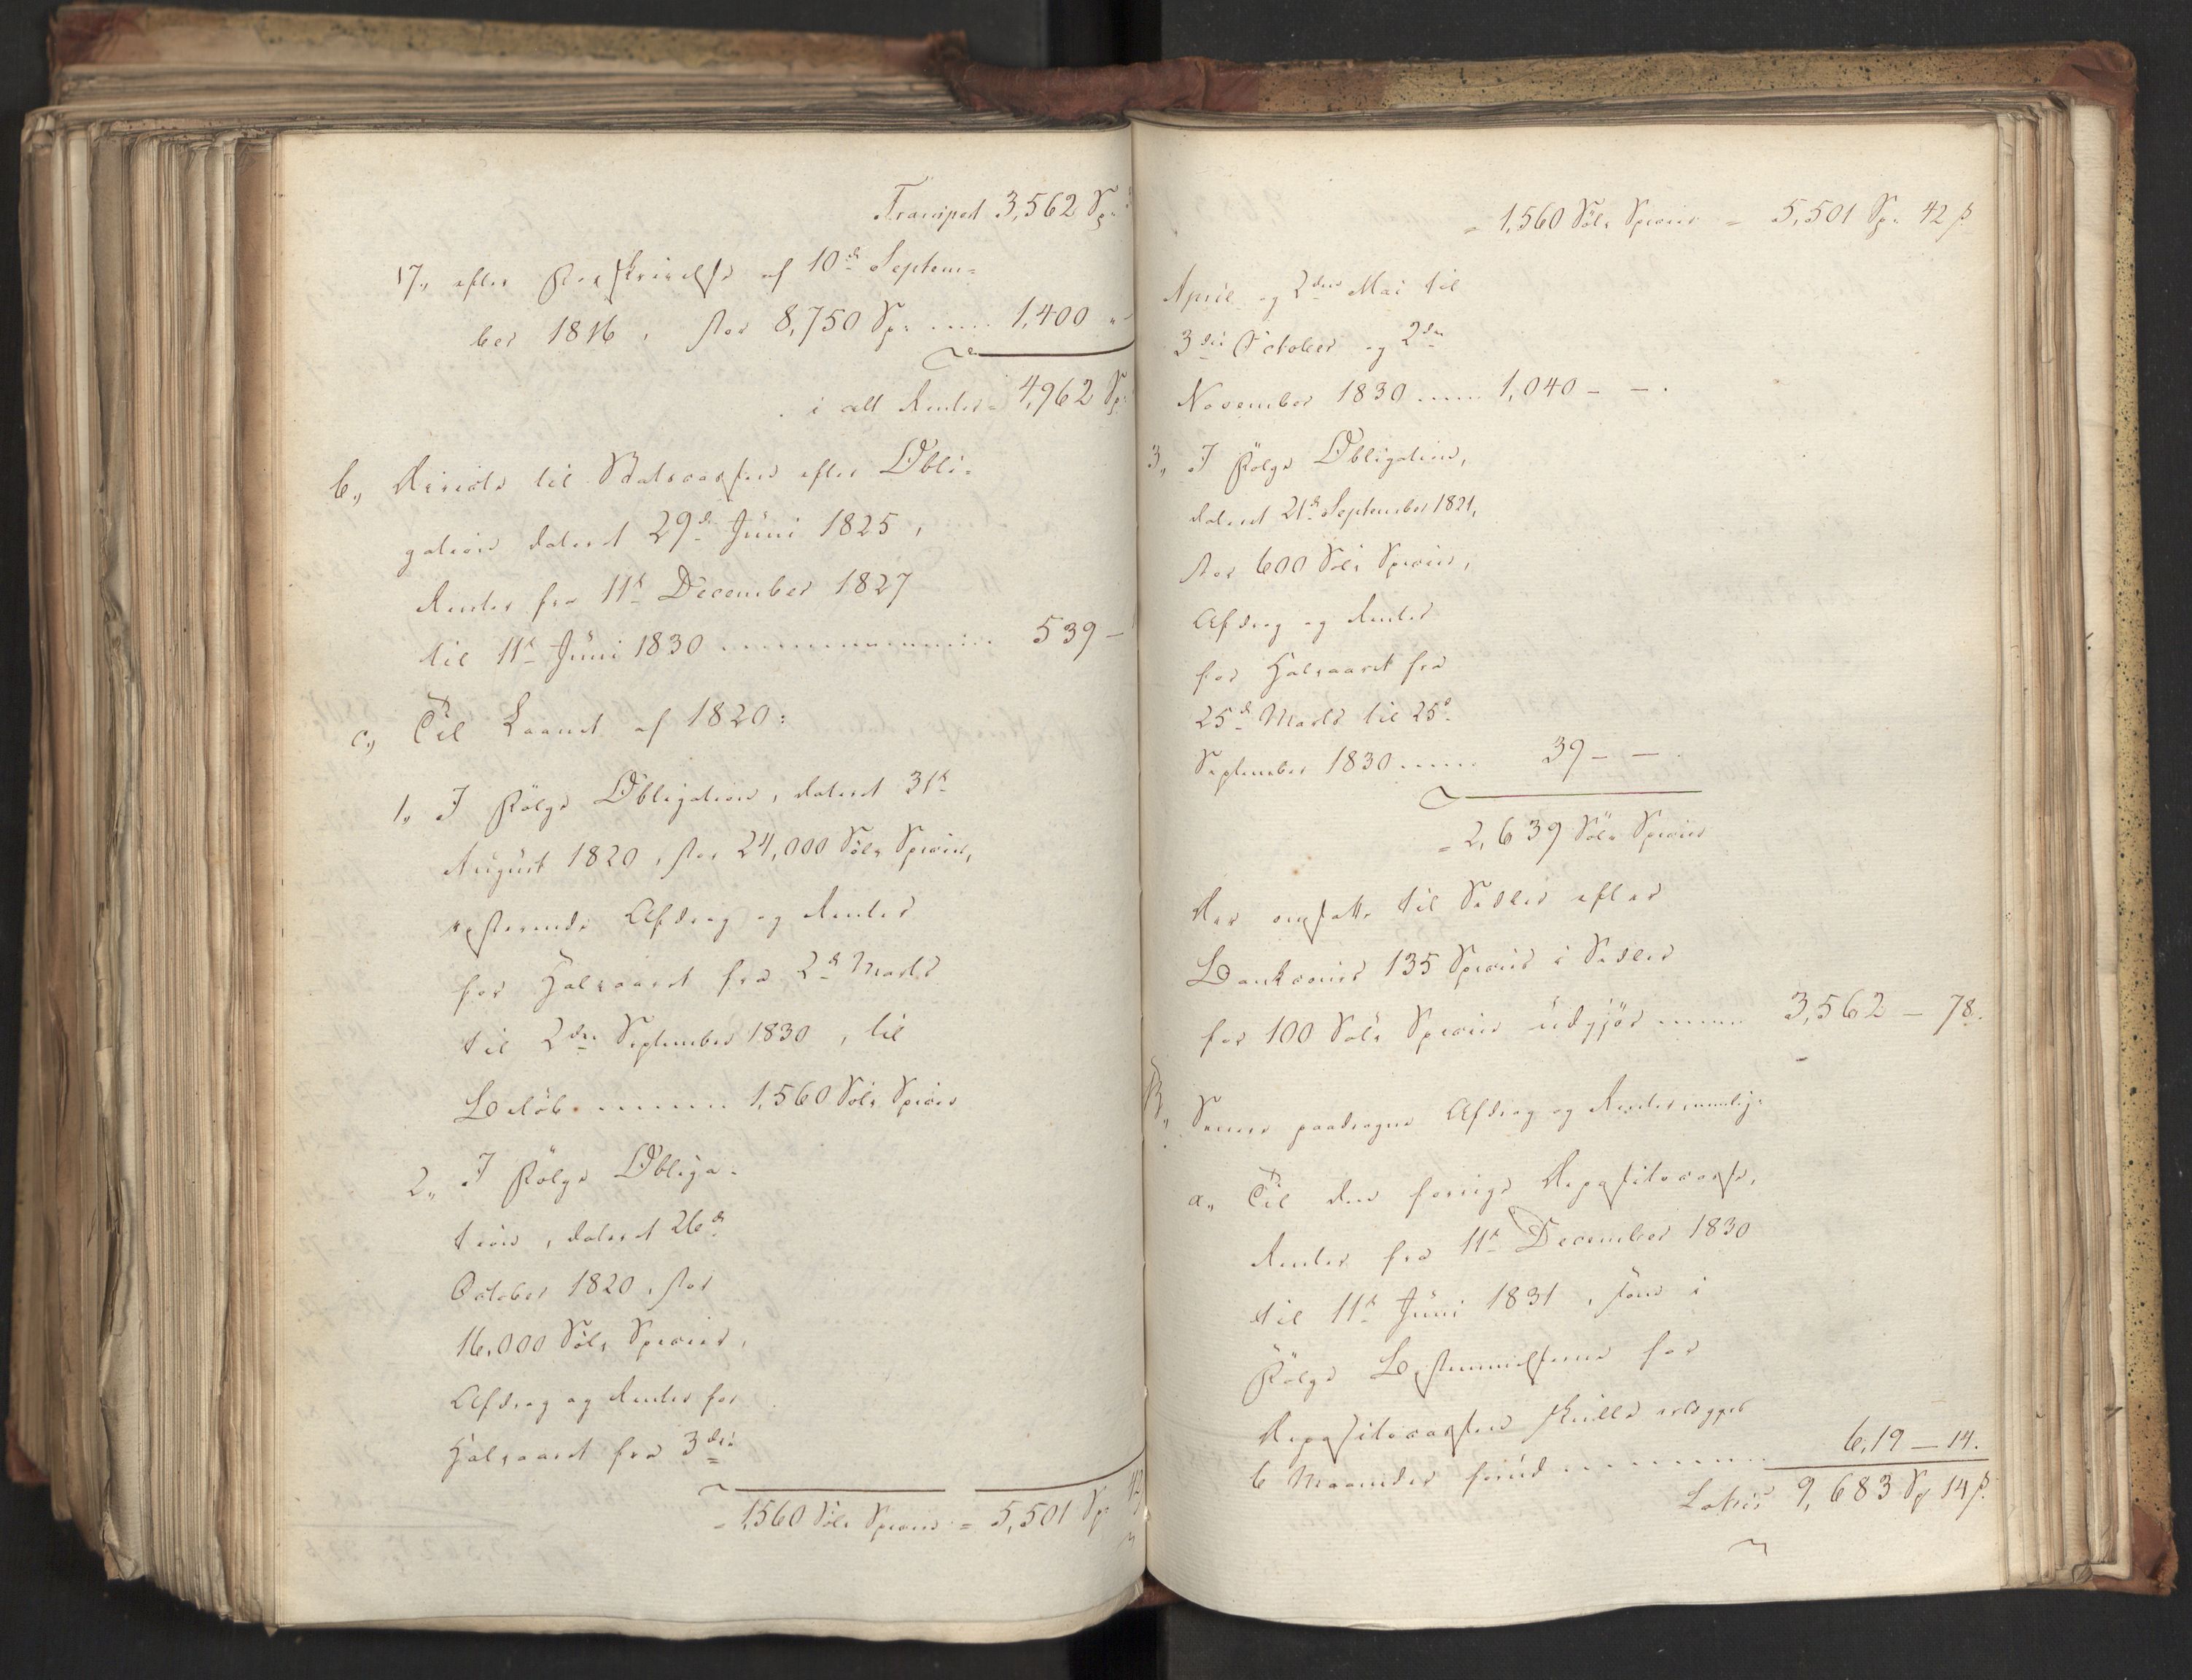 Transport 3,562 Sp:
17, efter Forskrivelse af 10d Septem-
ber 1816, stor 8,750 Sp: ..... 1,400 "
i alt Renter= 4,962 Sp:
b,, til Statscassen efter Obli-
gation dateret 29d Juni 1825,
Renter fra 11t December 1827
til 11t Juni 1830 ............ 539 -
c,, Til Laanet af 1820:
1, I Følge Obligation, dateret 31t
August 1820, stor 24,000 Sölv Specier,
resterende Afdrag og Renter
for Halvaaret fra 2d Marts
til 2den September 1830, til
Belöb ........ 1,560 Sölv Specier
2,, I Følge Obliga-
tion, dateret 26d
October 1820, stor
16,000 Sölv Specier,
Afdrag og Renter for
Halvaaret fra 3die
= 1560 Sölv Specier = 5,501 Sp: 42
= 1,560 Sölv Specier = 5,501 Sp: 42 ß
April og 2den Mai til
3die October og 2den
November 1830 ..... 1,040 - - .
3, I Følge Obligation,
dateret 21d September 1821,
stor 600 Sölv Specier,
Afdrag og Renter
for Halvaaret fra
25d Marts til 25d
September 1830 ..... 39 - - .
= 2,639 Sölv Specier
der omsatte til Sedler efter
Bankcours 135 Specier i Sedler
for 100 Sölv Specier udgjör ..... 3,562 - 78.
B,, Senere paadragne Afdrag og Renter, nemlig:
a,, Til den forrige Depositocasse,
Renter fra 11t December 1830
til 11t Juni 1831, som i
Følge Bestemmelserne for
Depositocassen skulle erlægges
6 Maaneder forud ........ 619 - 14.
Latus 9,683 Sp 14 ß.